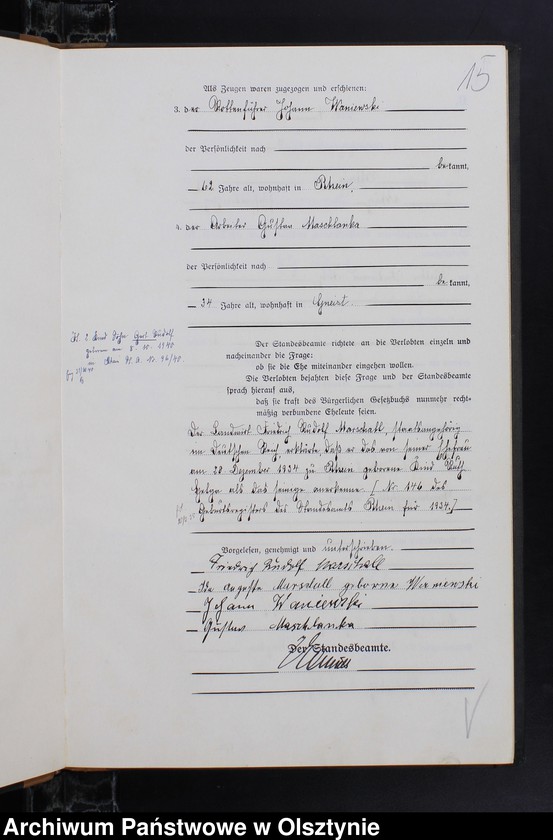 15
Als Zeugen waren zugezogen und erschienen:
3. der Rottenführer Johann Waniewski
der Persönlichkeit nach
bekannt,
62 Jahre alt, wohnhaft in Rhein.
4. der Arbeiter Gustav Maschlanka
der Persönlichkeit nach
bekannt,
34 Jahre alt, wohnhaft in Gneist.
Der Standesbeamte richtete an die Verlobten einzeln und
nacheinander die Frage:
ob sie die Ehe miteinander eingehen wollen.
Die Verlobten bejahten diese Frage und der Standesbeamte
sprach hierauf aus,
daß sie kraft des Bürgerlichen Gesetzbuchs nunmehr recht-
mäßig verbundene Eheleute seien.
2. Kind Sohn Rudolf
geboren am 8. 10. 1940
St. A. Nr. 96/40.
Der Landwirt Friedrich Rudolf Marschall, Staatsangehörig
im Deutschen Reich, erklärte, daß er das von seiner Ehefrau
am 28 Dezember 1934 zu Rhein geborene Kind Ruth
Helga als das seinige anerkenne. [Nr. 146 des
Geburtsregisters des Standesamts Rhein für 1934.]
Vorgelesen, genehmigt und unterschrieben.
Friedrich Rudolf Marschall
Ida Auguste Marschall geborne Waniewski
Johann Waniewski
Gustav Maschlanka
Der Standesbeamte.
Archiwum Państwowe w Olsztynie